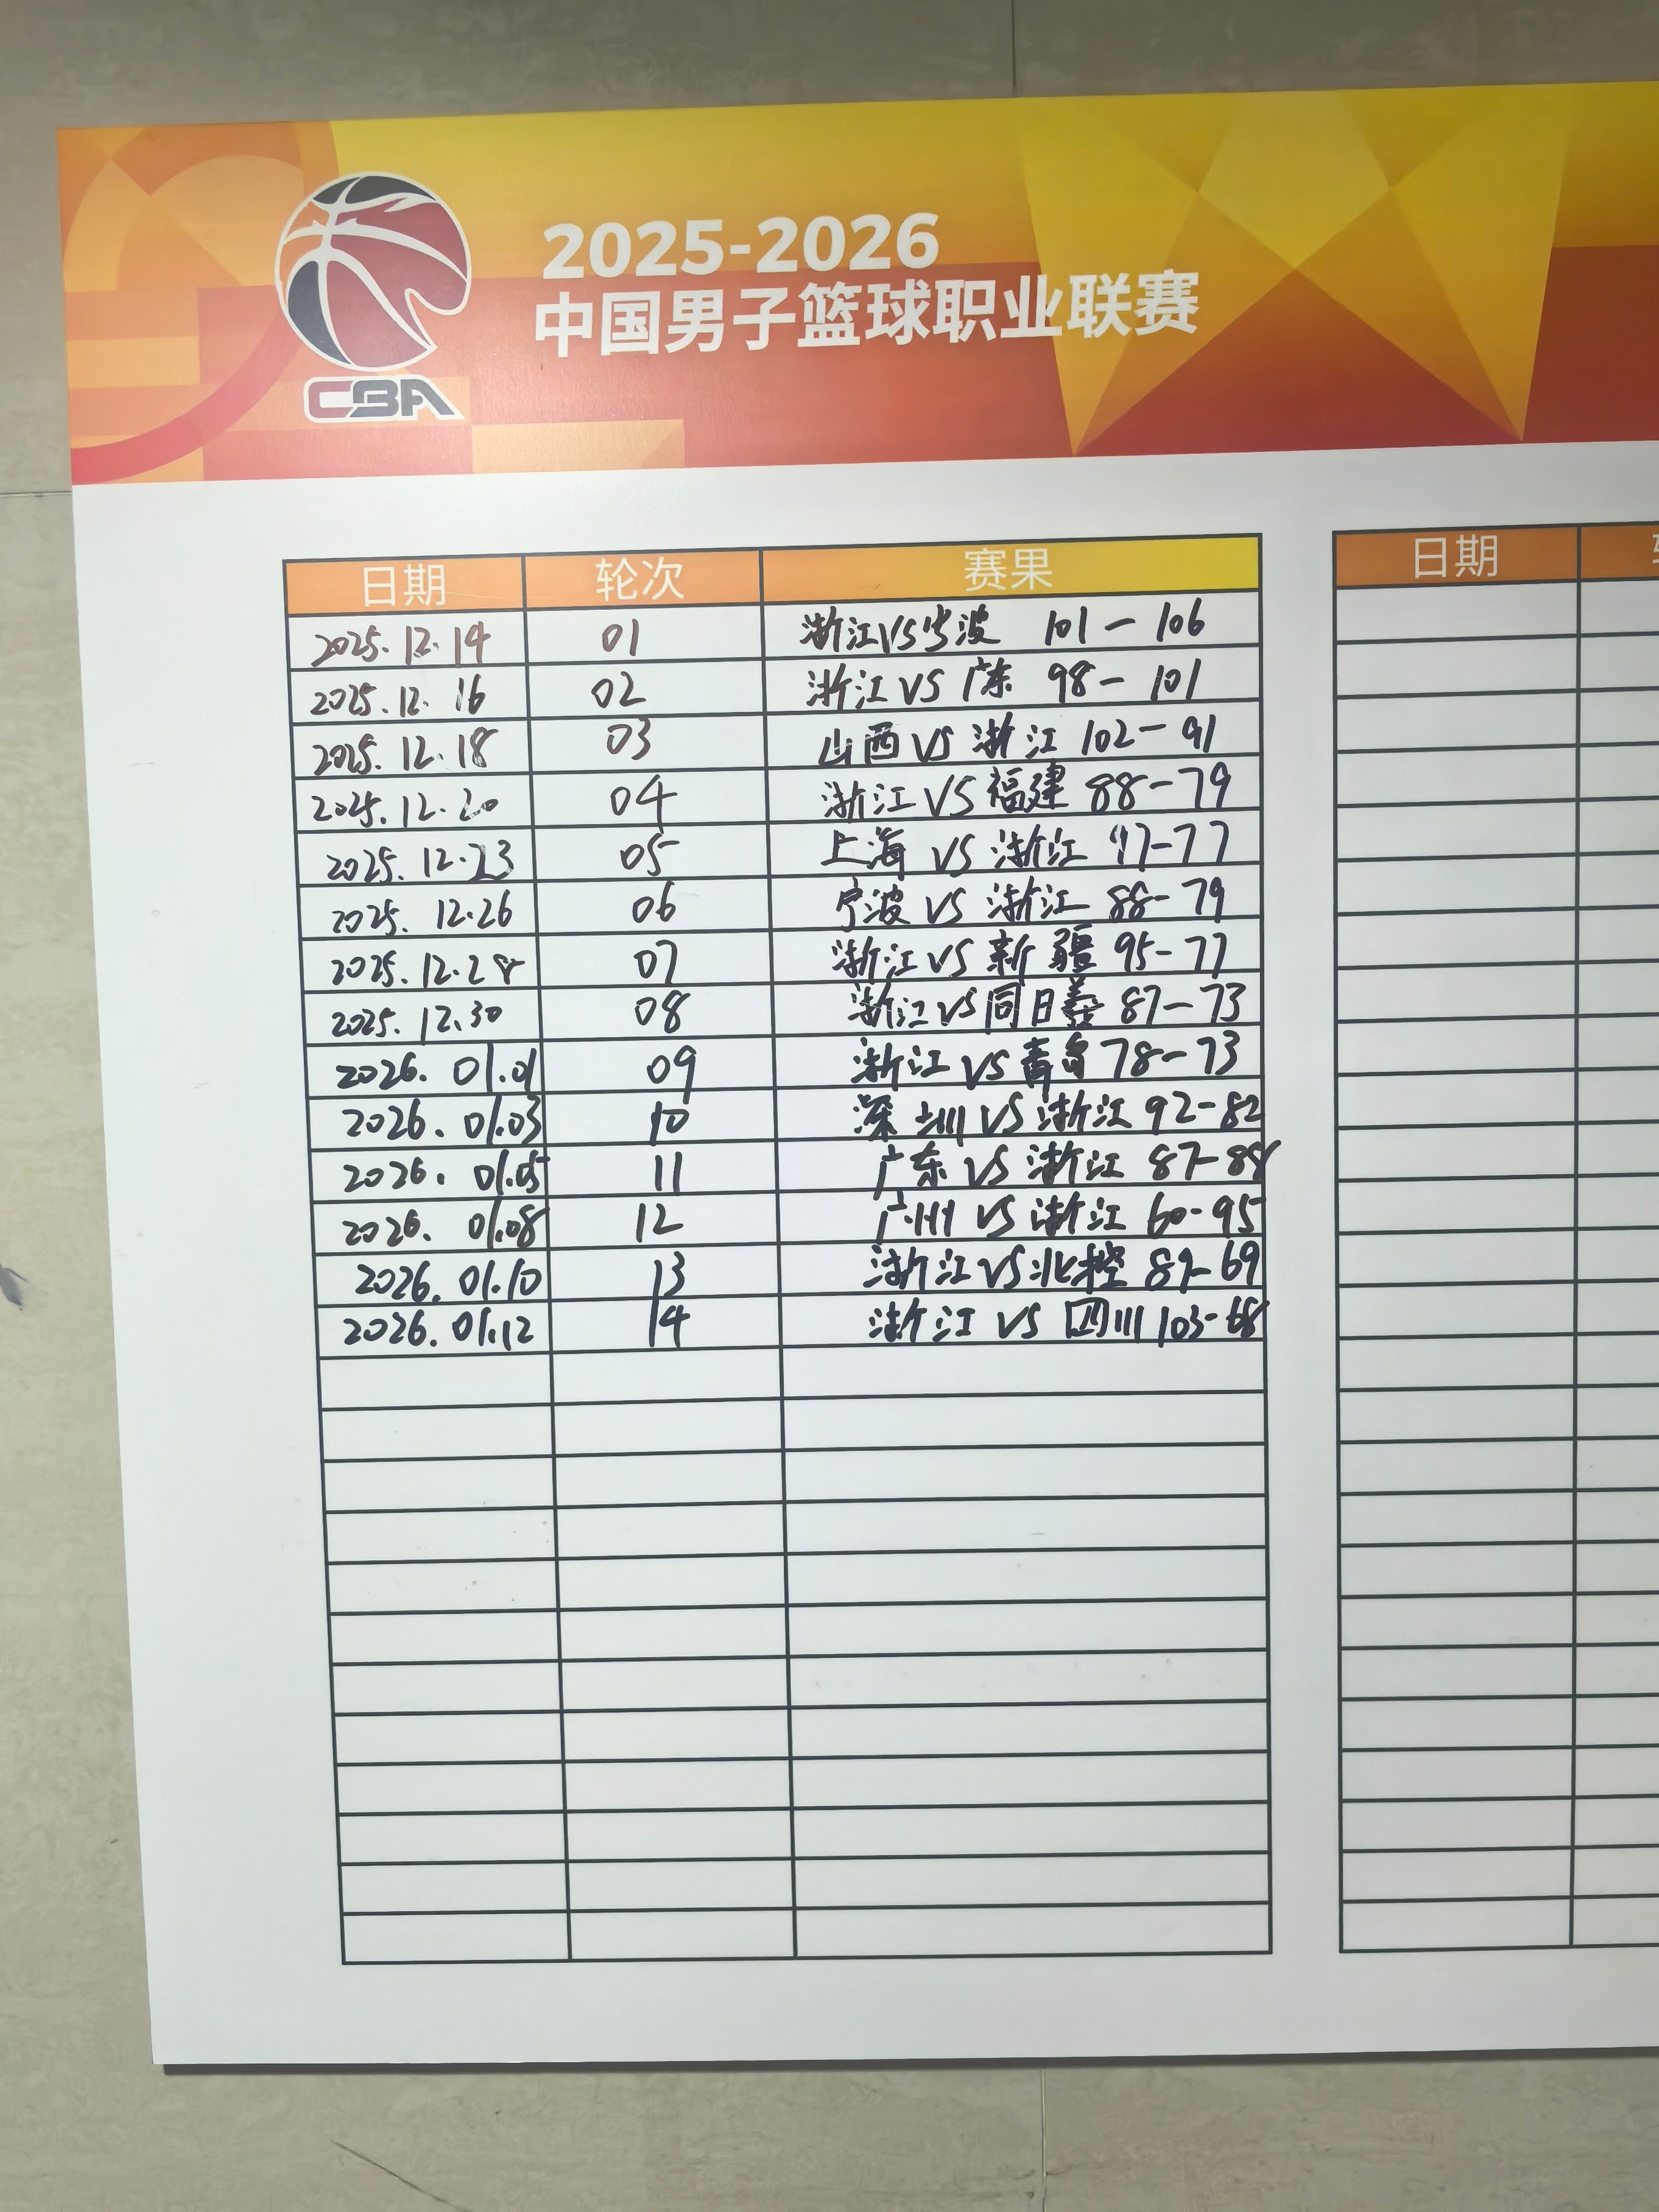 CBA
2025-2026
中国男子篮球职业联赛
日期 轮次 赛果 日期
2025.12.14 01 浙江VS宁波 101-106
2025.12.16 02 浙江VS广东 98-101
2025.12.18 03 山西VS浙江 102-91
2025.12.20 04 浙江VS福建 88-79
2025.12.23 05 上海VS浙江 97-77
2025.12.26 06 宁波VS浙江 88-79
2025.12.28 07 浙江VS新疆 95-77
2025.12.30 08 浙江VS同曦 87-73
2026.01.01 09 浙江VS青岛 78-73
2026.01.03 10 深圳VS浙江 92-82
2026.01.05 11 广东VS浙江 87-88
2026.01.08 12 广州VS浙江 60-95
2026.01.10 13 浙江VS北控 89-69
2026.01.12 14 浙江VS四川 103-68